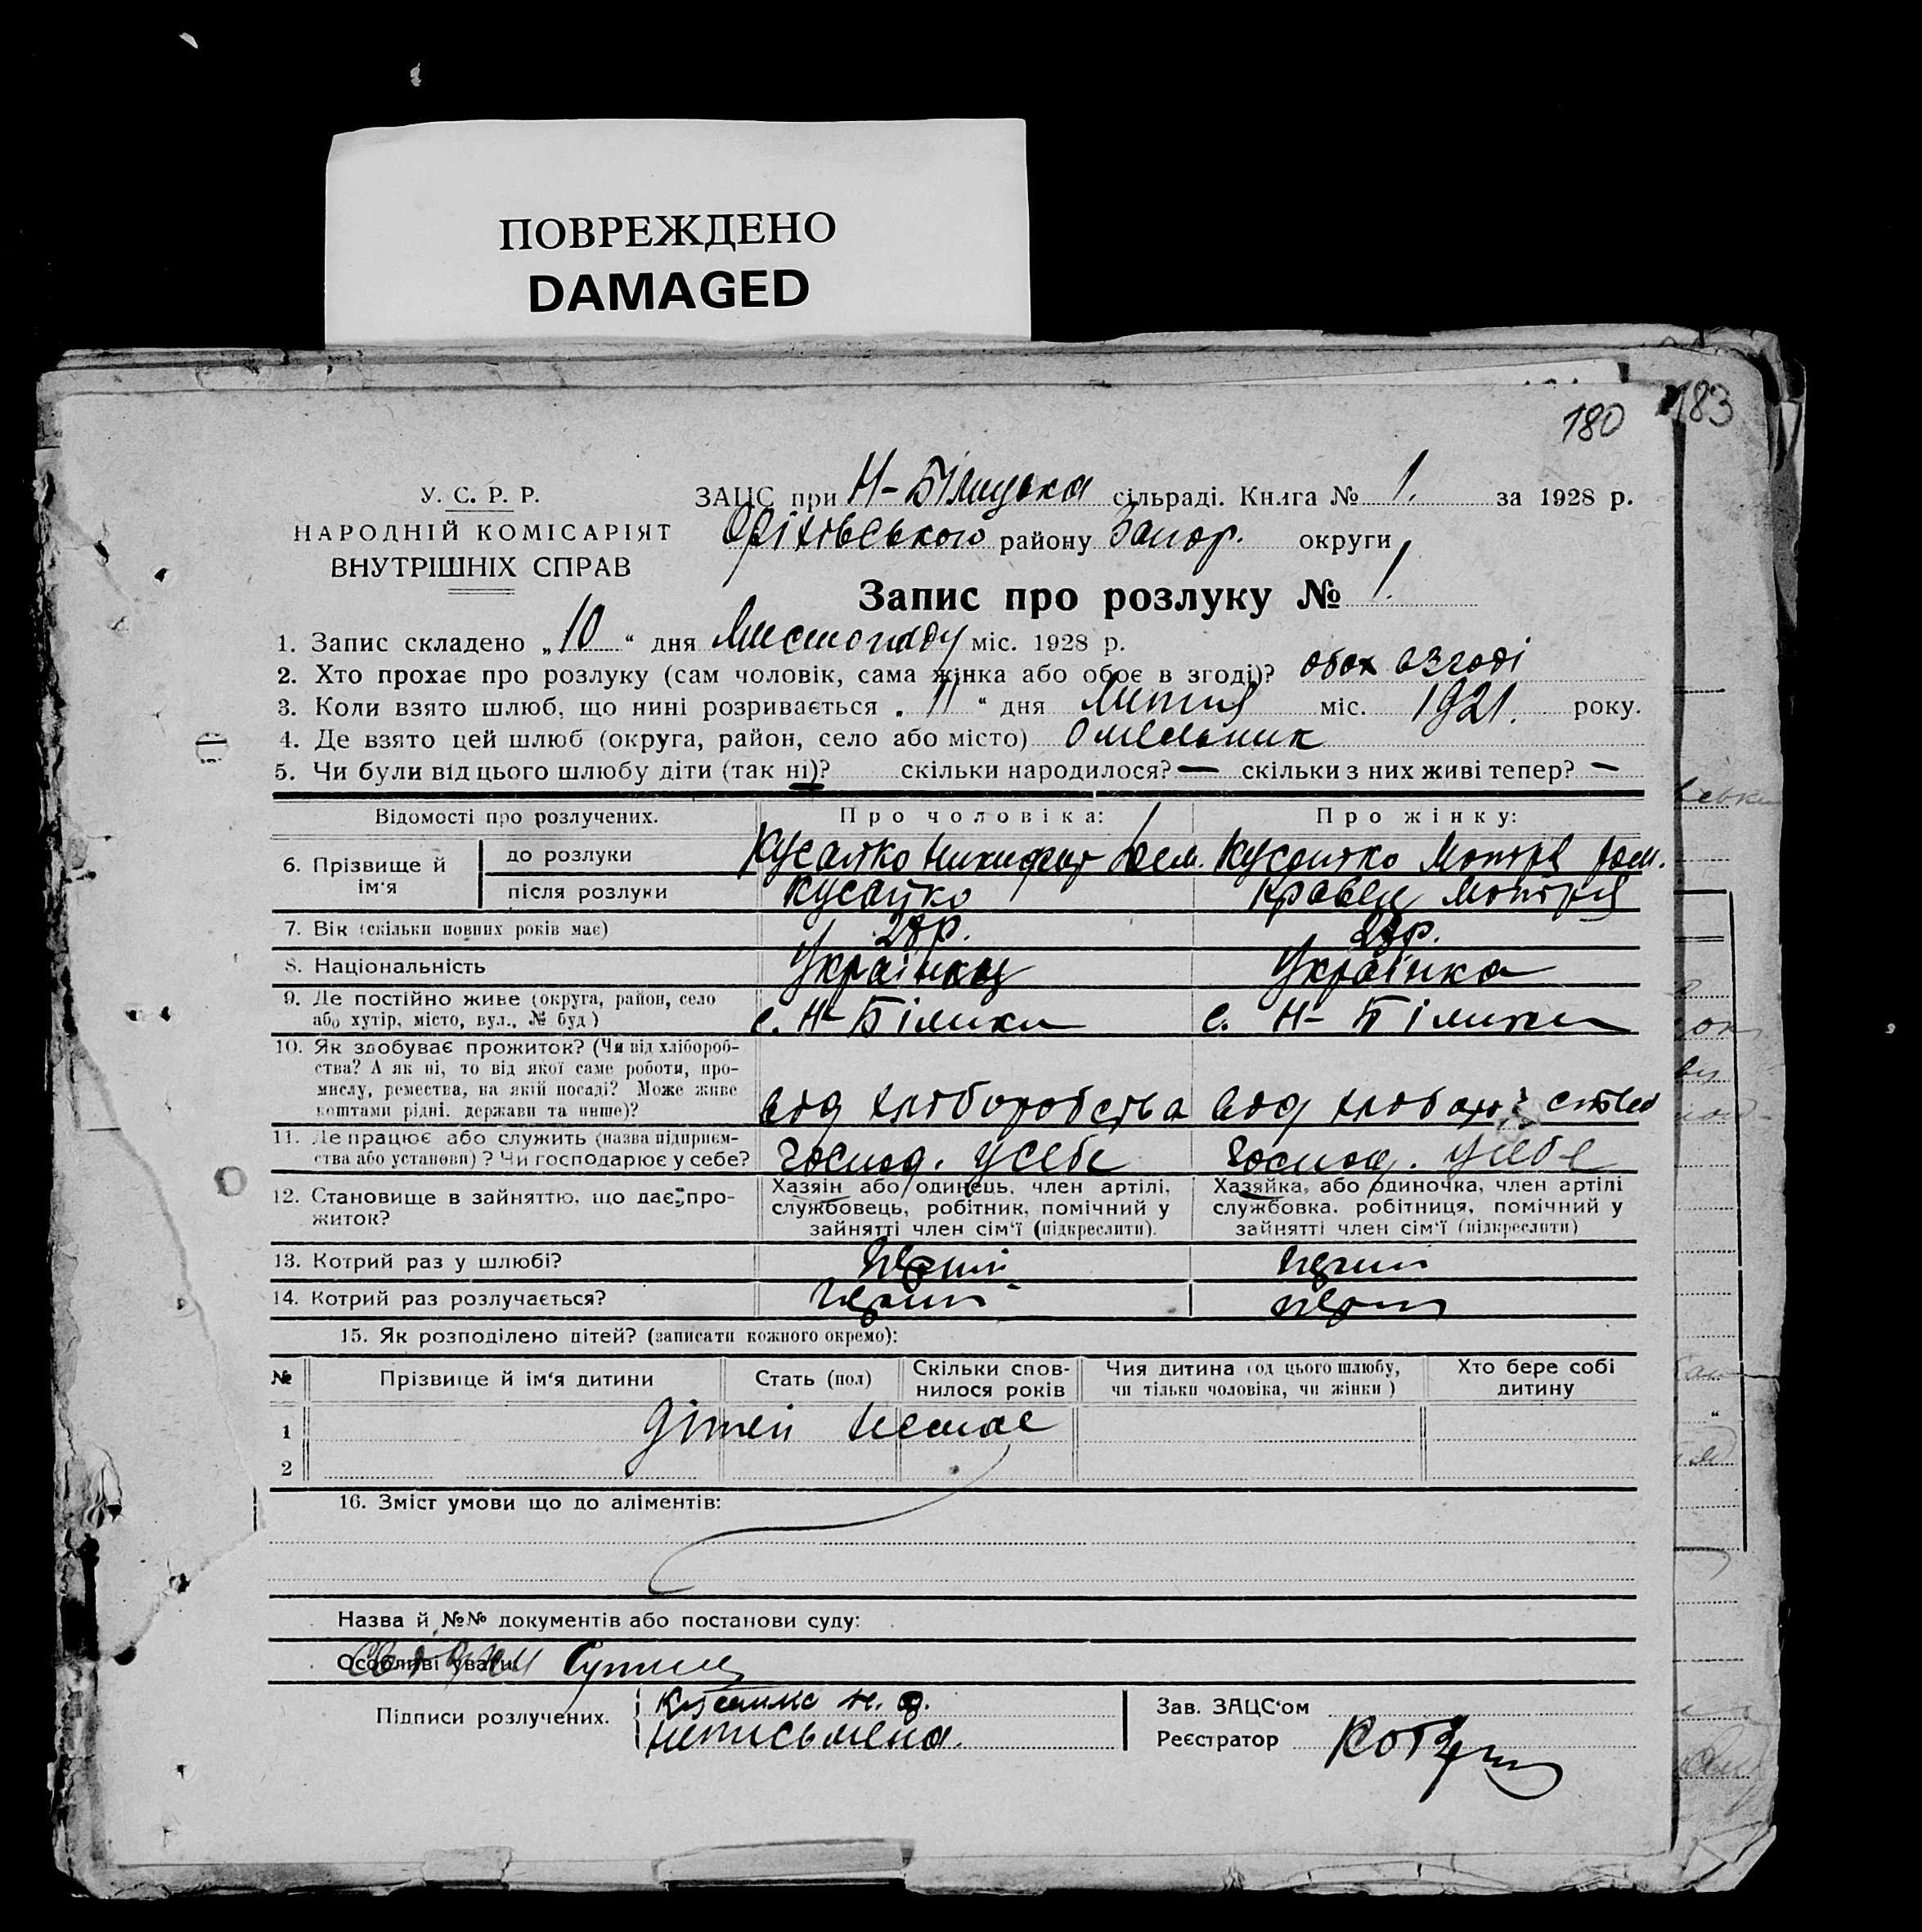 ПОВРЕЖДЕНО
DAMAGED
180
183
У. С. Р. Р.
НАРОДНІЙ КОМІСАРІЯТ
ВНУТРІШНІХ СПРАВ
ЗАЦС при Н-Білицька сільраді. Книга № 1. за 1928 р.
Оріхівського району Запор. округи
Запис про розлуку № 1.
1. Запис складено „10“ дня Листопаду міс. 1928 р.
2. Хто прохає про розлуку (сам чоловік, сама жінка або обоє в згоді)? обох взгоді
3. Коли взято шлюб, що нині розривається „11“ дня Липня міс. 1921. року.
4. Де взято цей шлюб (округа, район, село або місто) Омельник
5. Чи були від цього шлюбу діти (так ні)? скільки народилося? — скільки з них живі тепер? —
Відомості про розлучених. Про чоловіка: Про жінку:
6. Прізвище й ім'я
до розлуки Кусайко Никифор Кусайко Мотря
після розлуки Кусайко Кравец Мотря
7. Вік (скільки повних років має)
8. Національність Українец Українка
9. Де постійно живе (округа, район, село
або хутір, місто, вул., № буд) с. Н-Білики с. Н-Білики
10. Як здобуває прожиток? (Чи від хлібороб-
ства? А як ні, то від якої саме роботи, про-
мислу, ремества, на якій посаді? Може живе
коштами рідні. держави та инше)? від хліборобства від хліборобства
11. Де працює або служить (назва підприєм-
ства або установи)? Чи господарює у себе? Господ. усебе Господ. усебе
12. Становище в зайняттю, що дає про-
житок?
Хазяін або одинець, член артілі,
службовець, робітник, помічний у
зайнятті член сім'ї (підкреслити).
Хазяйка, або одиночка, член артілі
службовка. робітниця, помічний у
зайнятті член сім'ї (підкреслити)
13. Котрий раз у шлюбі? перший перший
14. Котрий раз розлучається? перший перший
15. Як розподілено дітей? (записати кожного окремо):
№ Прізвище й ім'я дитини Стать (пол) Скільки спов-
нилося років Чия дитина (од цього шлюбу,
чи тільки чоловіка, чи жінки) Хто бере собі
дитину
1 Дітей немає
2
16. Зміст умови що до аліментів:
Назва й №№ документів або постанови суду:
Особливі уваги
Підписи розлучених. Кусайко Н.
неписьмена.
Зав. ЗАЦС'ом
Реєстратор